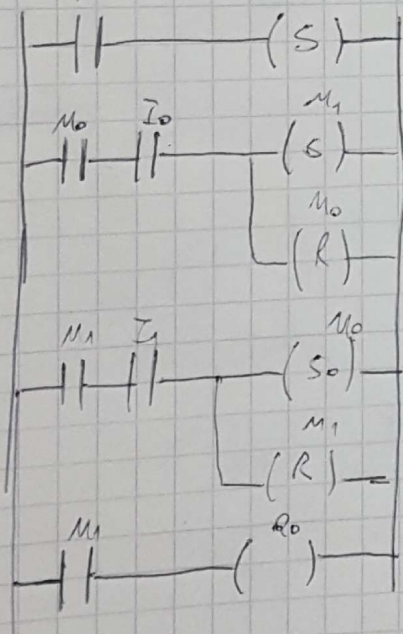 ( S )
M0 I0 M1
( S )
M0
( R )
M1 I1 M0
( S0 )
M1
( R )
M1 Q0
( )